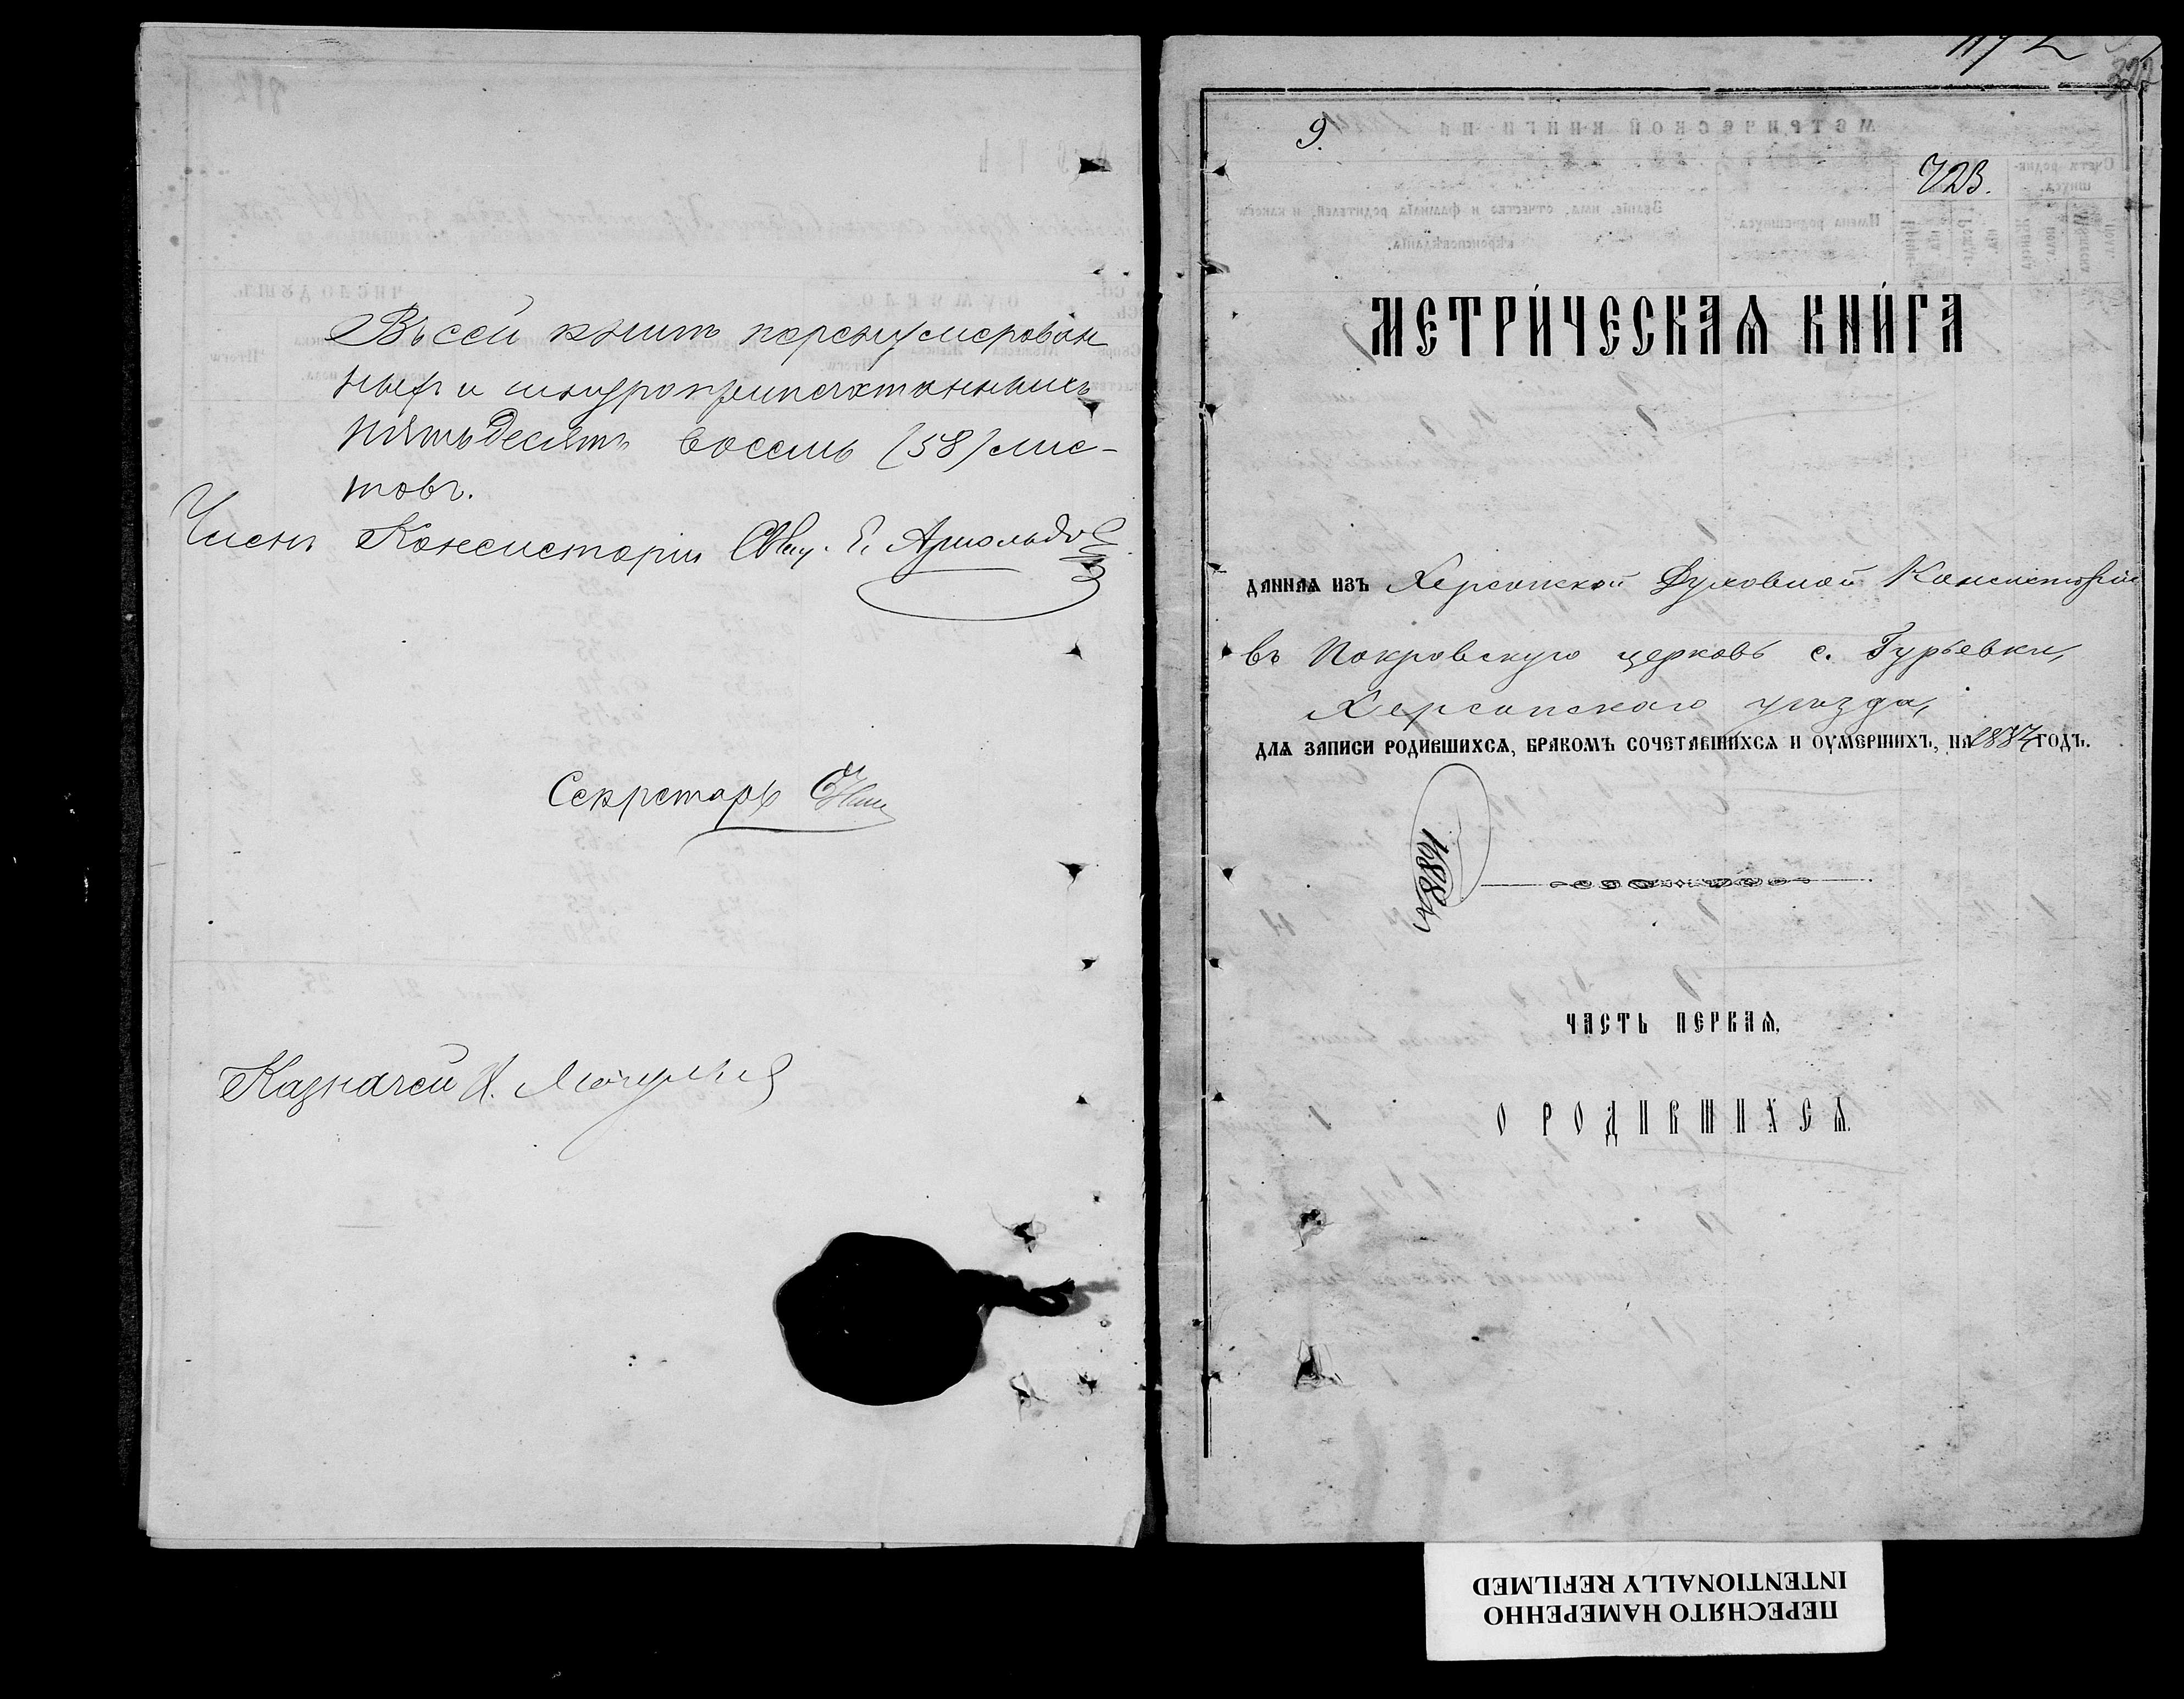 Въ сей книгѣ перенумерован-
ныхъ и шнуроприпечатанныхъ
пятьдесятъ восемь (58) лис-
товъ.
Членъ Консисторіи Свящ. Е. Арнольдовъ
Секретарь
Казначей И.
322
9.
723.
МЕТРИ́ЧЕСКАѦ КНИ́ГА
даннаѧ изъ Херсонской Духовной Консисторіи
въ Покровскую церковь с. Гурьевки,
Херсонскаго уѣзда,
длѧ записи родившихсѧ, бракомъ сочетавшихсѧ и оумершихъ, на 1884 годъ.
1688
ЧАСТЬ ПЕРВАѦ,
О РОДИВШИХСѦ.
ПЕРЕСНЯТО НАМЕРЕННО
INTENTIONALLY REFILMED